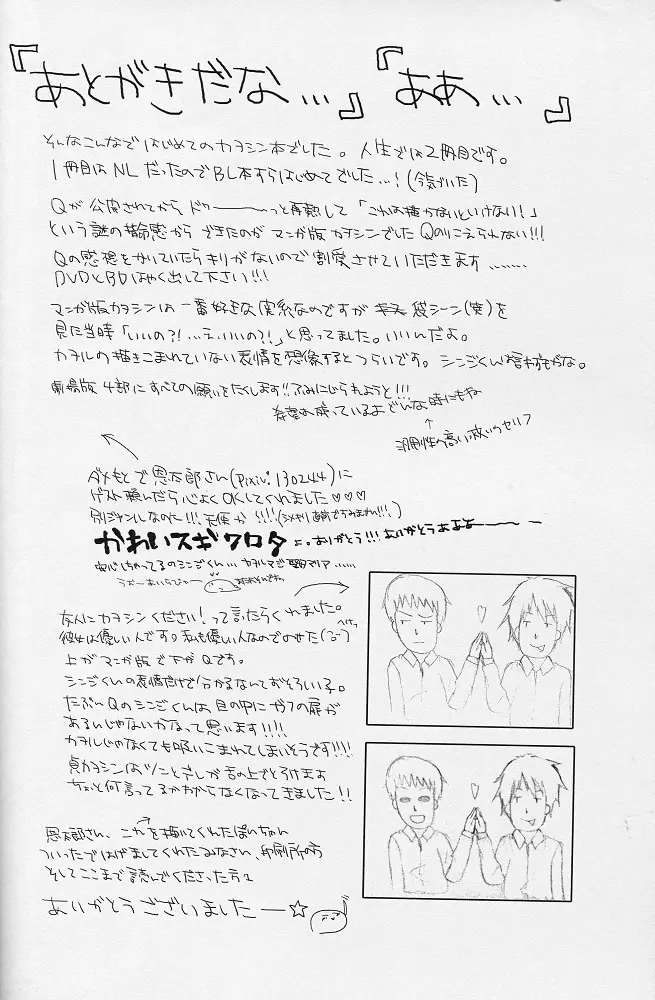 『あとがきだな…』『ああ…』
そんなこんなではじめてのカヲシン本でした。人生では2冊目です。
1冊目はNLだったのでBL本すらはじめてでした…!(今気づいた)
Qが公開されてからドゥーーーっと再熱して「これは描かないといけない!」
という謎の使命感からできたのがマンガ版カヲシンでしたQのりこえられない!!!
Qの感想をかいていたらキリがないので割愛させていただきます………
DVDとBDはやく出して下さい!!!
マンガ版カヲシンは一番好きな実系なのですがキス袋シーン(笑)を
見た当時「いいの?!…え、いいの?!」と思ってました。いいんだよ。
カヲルの描きこまれていない表情を想像するとつらいです。シンジくん
劇場版4部にすべての願いをたくします!!ふみにじられようと!!!
希望は残っているよどんな時にもね
↑
汎用性の高い救いのセリフ
ダメもとで恩太郎さん(pixiv:130244)に
ゲスト頼んだら心よくOKしてくれました♡♡♡
別ジャンルなのに!!!天使か!!!!(〆切直前ですみません!!!)
かわいスギワロタ よ。ありがとう!!!ありがとうあああーーー
安心しちゃってるのシンジくん…カヲルマジ聖母マリア……
友人にカヲシンください!って言ったらくれました。
彼女は優しい人です。私も優しい人なのでのせた
上がマンガ版で下がQです。
シンジくんの表情だけで分かるなんておそろしい子。
たぶんQのシンジくんは目の中にガフの扉が
あるんじゃないかなって思います!!!!
カヲルじゃなくても吸いこまれてしまいそうです!!!
貞カヲシンはツンとデレが舌の上でとろけます
ちょっと何言ってるかわからなくなってきました!!
恩太郎さん、これを描いてくれたぽいちゃん
ついったではげましてくれたみなさん、印刷所の方
そしてここまで読んでくださった方々
ありがとうございましたー☆